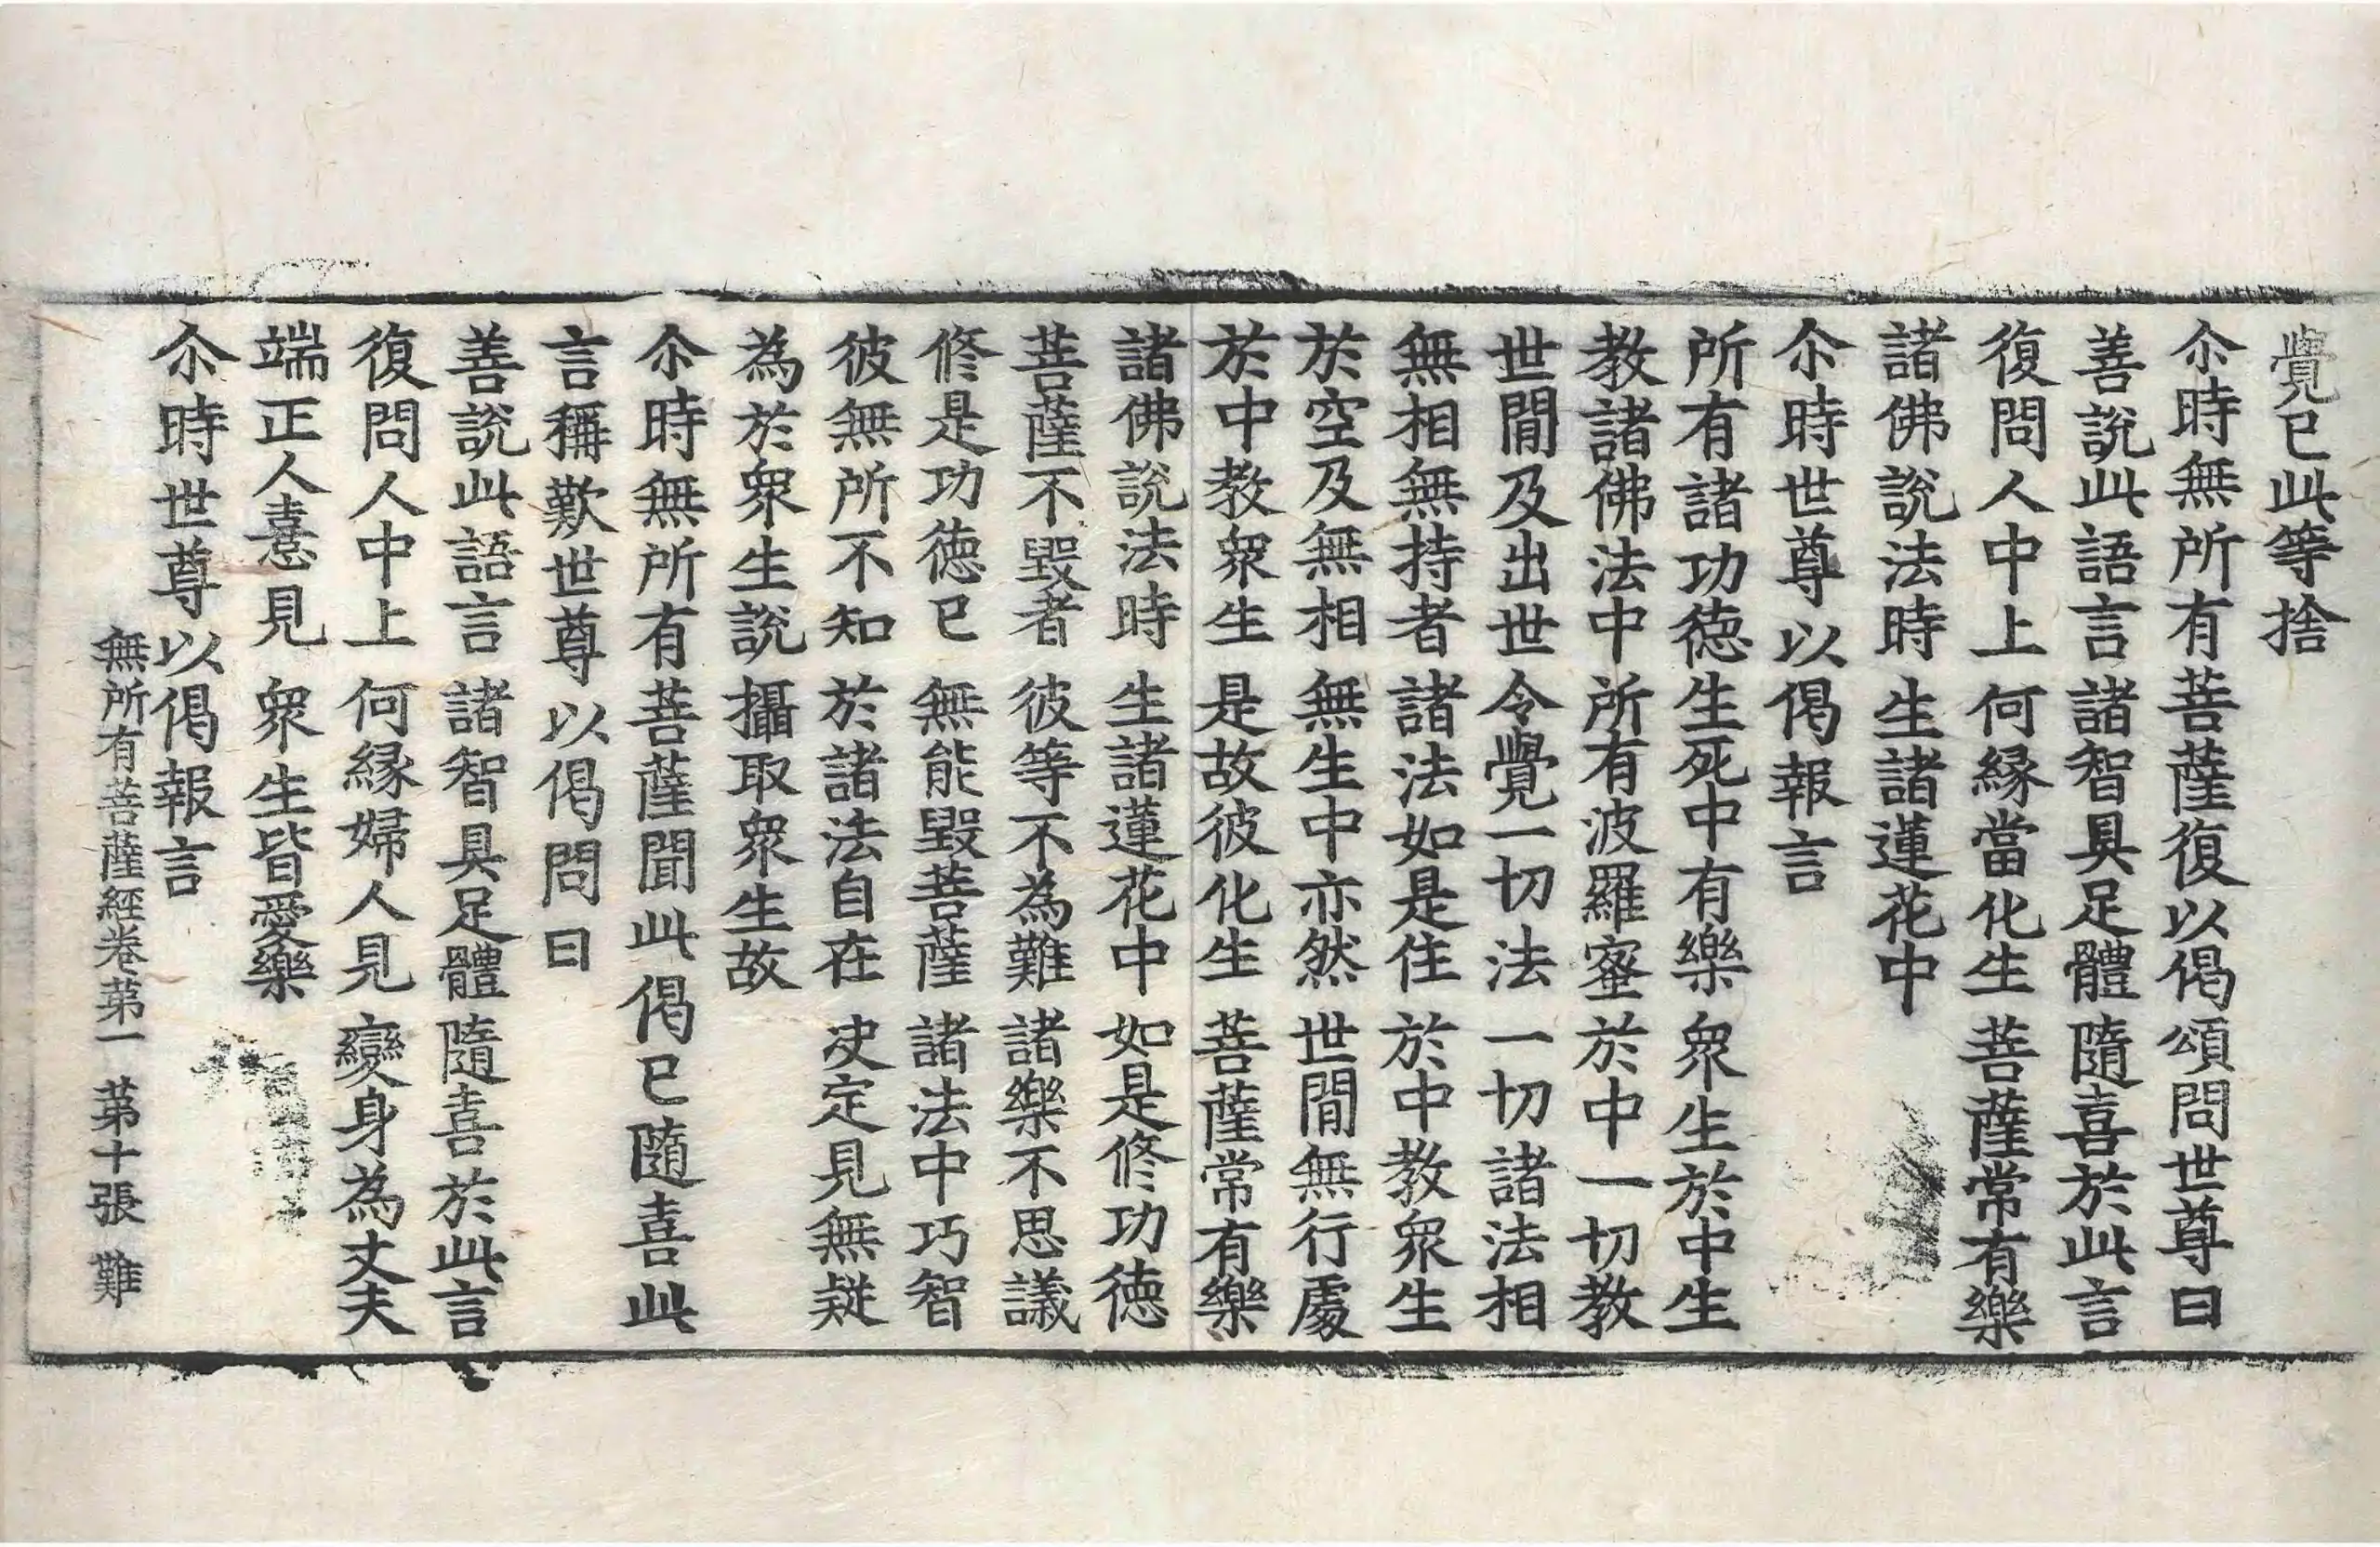 覺已此等捨
尒時無所有菩薩復以偈頌問世尊曰
善說此語言 諸智具足體 隨喜於此言
復問人中上 何緣當化生 菩薩常有樂
諸佛說法時 生諸蓮花中
尒時世尊以偈報言
所有諸功德 生死中有樂 衆生於中生
教諸佛法中 所有波羅蜜 於中一切教
世閒及出世 令覺一切法 一切諸法相
無相無持者 諸法如是住 於中教衆生
於空及無相 無生中亦然 世閒無行處
於中教衆生 是故彼化生 菩薩常有樂
諸佛說法時 生諸蓮花中 如是修功德
菩薩不毀者 彼等不為難 諸樂不思議
修是功德已 無能毀菩薩 諸法中巧智
彼無所不知 於諸法自在 决定見無疑
為於衆生說 攝取衆生故
尒時無所有菩薩聞此偈已隨喜此
言稱歎世尊以偈問曰
善說此語言 諸智具足體 隨喜於此言
復問人中上 何緣婦人見 變身為丈夫
端正人憙見 衆生皆愛樂
尒時世尊以偈報言
無所有菩薩經卷第一 第十張 難